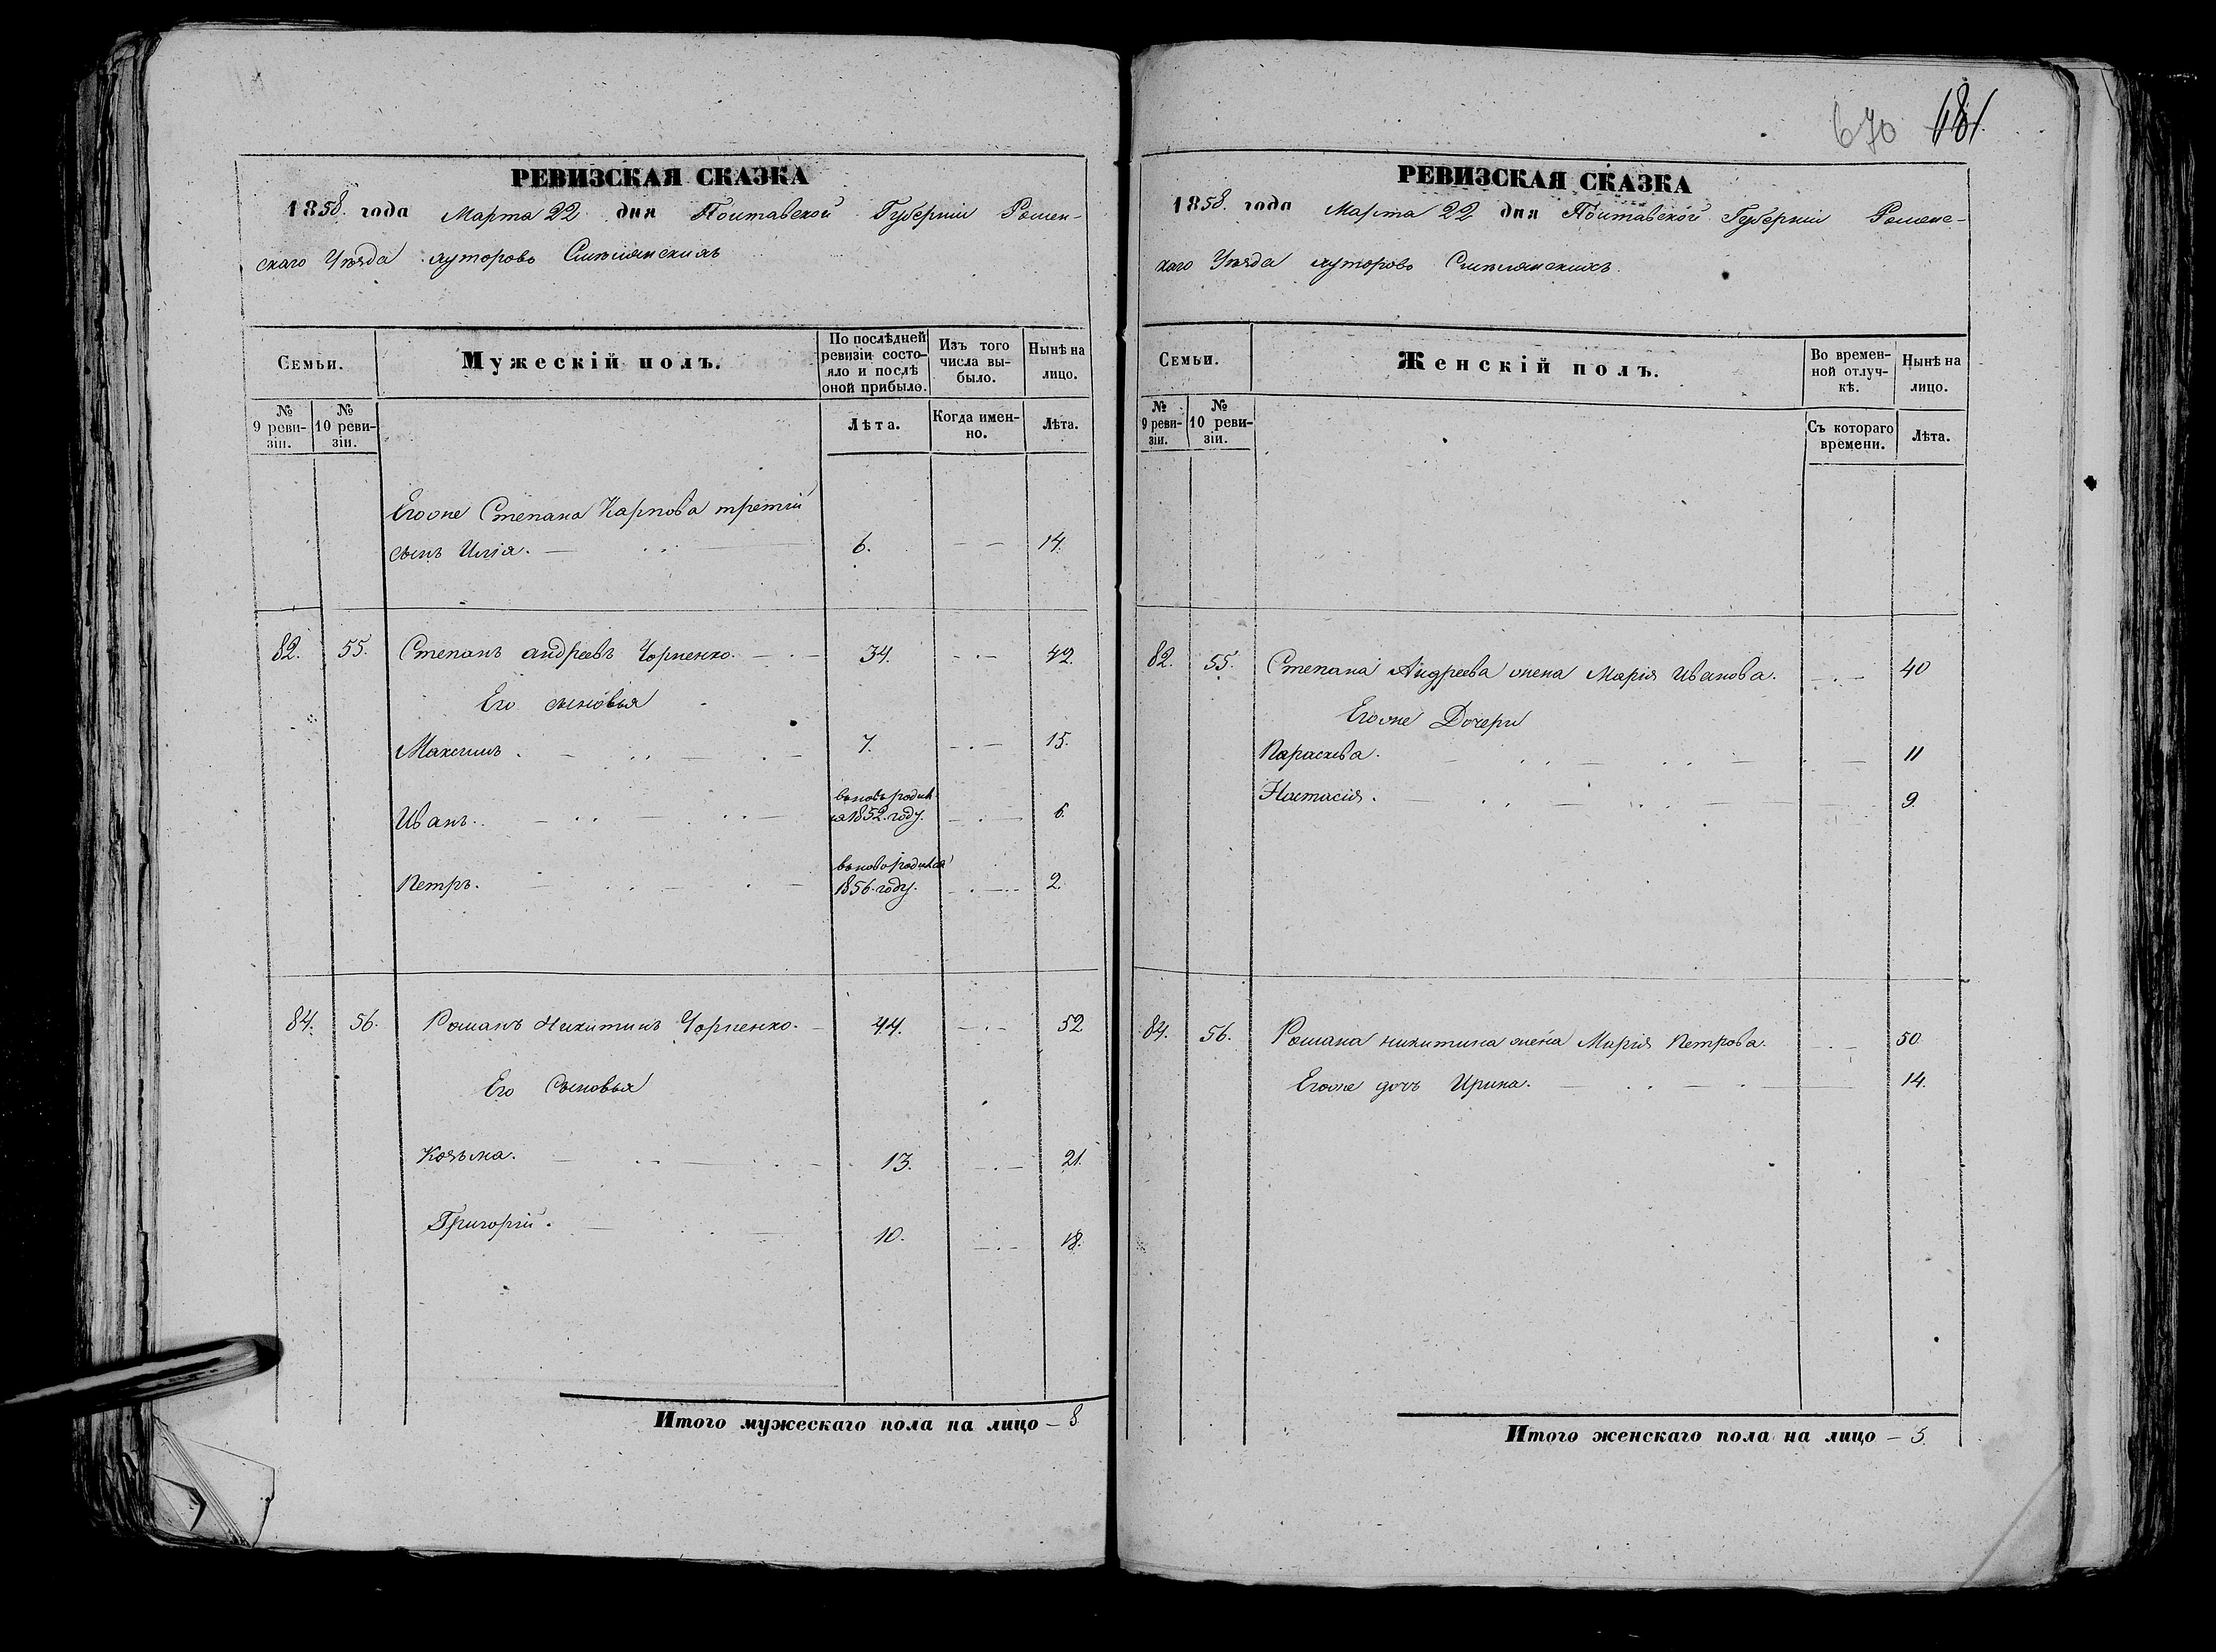 670 181.
РЕВИЗСКАЯ СКАЗКА
1858. года Марта 22 дня Полтавской Губерніи Ромен-
скаго Уѣзда хуторовъ
Семьи.
Мужескій полъ.
По послѣдней ревизіи состо-яло и послѣ оной прибыло.
Изъ того числа вы-было.
Нынѣ на лицо.
№ 9 реви-зіи.
№ 10 реви-зіи.
Лѣта.
Когда имен-но.
Лѣта.
Егоже Степана Карпова третій
сынъ Илія. 6. 14.
82. 55. Степанъ Андреевъ Чорненко. 34. 42.
Его сыновья
Максимъ. 7. 15.
Иванъ. вновь родил
ся 1852. году. 6.
Петръ. вновь родился
1856. году. 2.
84. 56. Романъ Никитинъ Чорненко. 44. 52
Его Сыновья
Козьма. 13. 21.
Григорій. 10. 18.
Итого мужескаго пола на лицо – 8
РЕВИЗСКАЯ СКАЗКА
1858. года Марта 22 дня Полтавской Губерніи Роменс-
каго Уѣзда хуторовъ
Семьи.
Женскій полъ.
Во времен-ной отлуч-кѣ.
Нынѣ на лицо.
№ 9 реви-зіи.
№ 10 реви-зіи.
Съ котораго времени.
Лѣта.
82. 55. Степана Андреева жена Марія Иванова. 40
Егоже Дочери
Параскева. 11
Настасія. 9.
84. 56. Романа Никитина жена Марія Петрова. 50
Егоже дочь Ирина. 14.
Итого женскаго пола на лицо – 5.